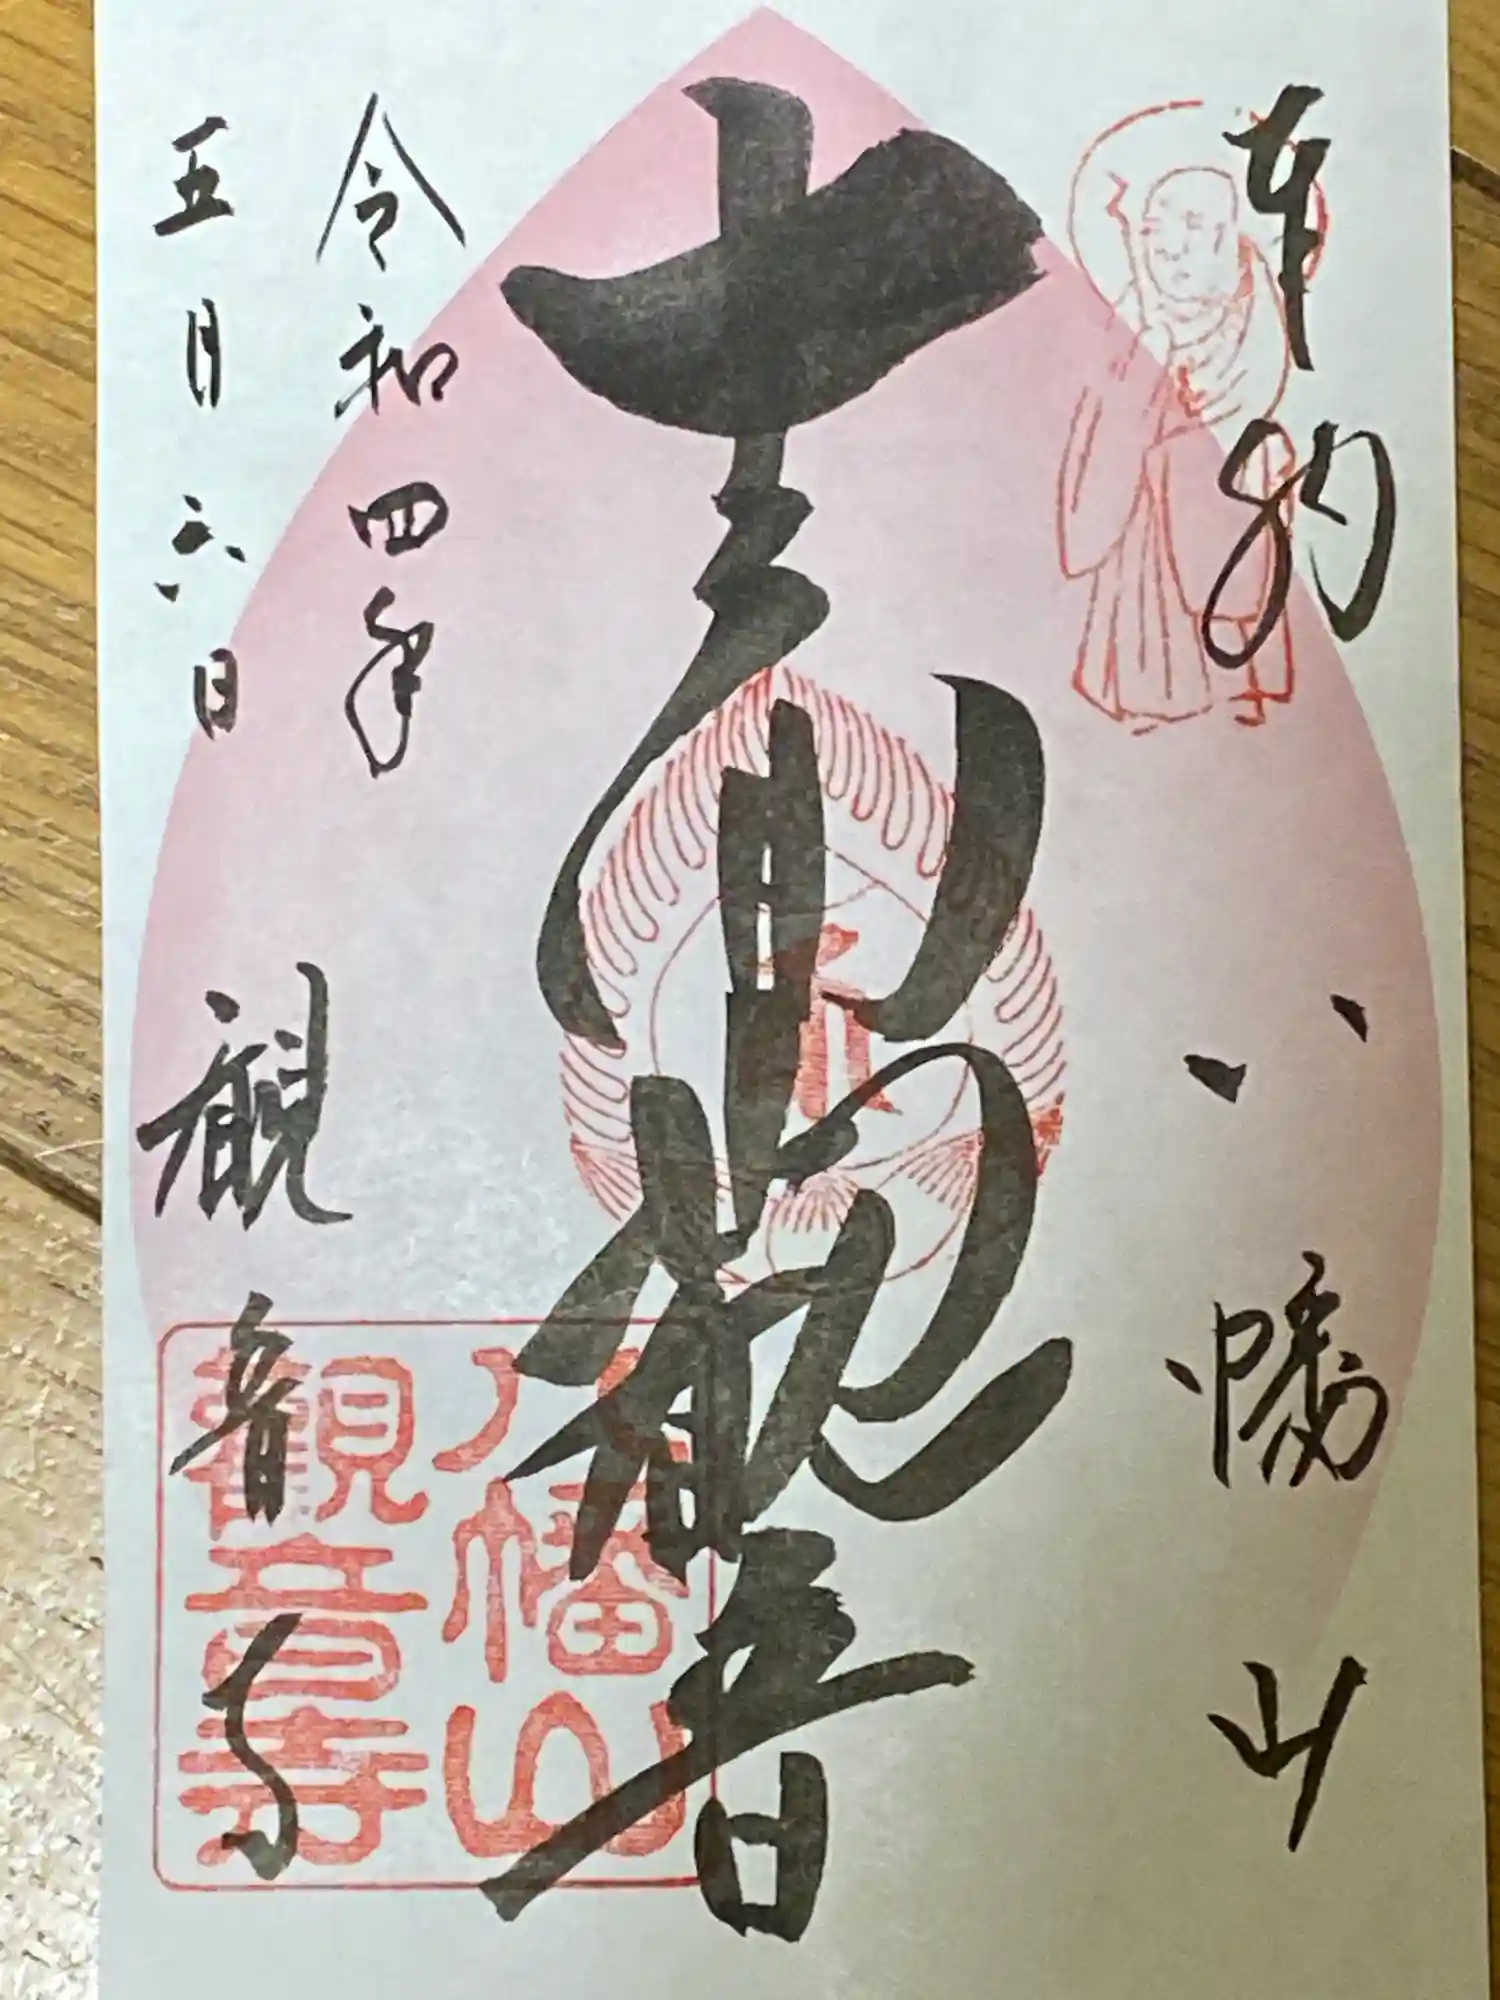 奉拝 八幡山
十一面観音
令和四年
五月六日
観音寺
八幡山
観音寺